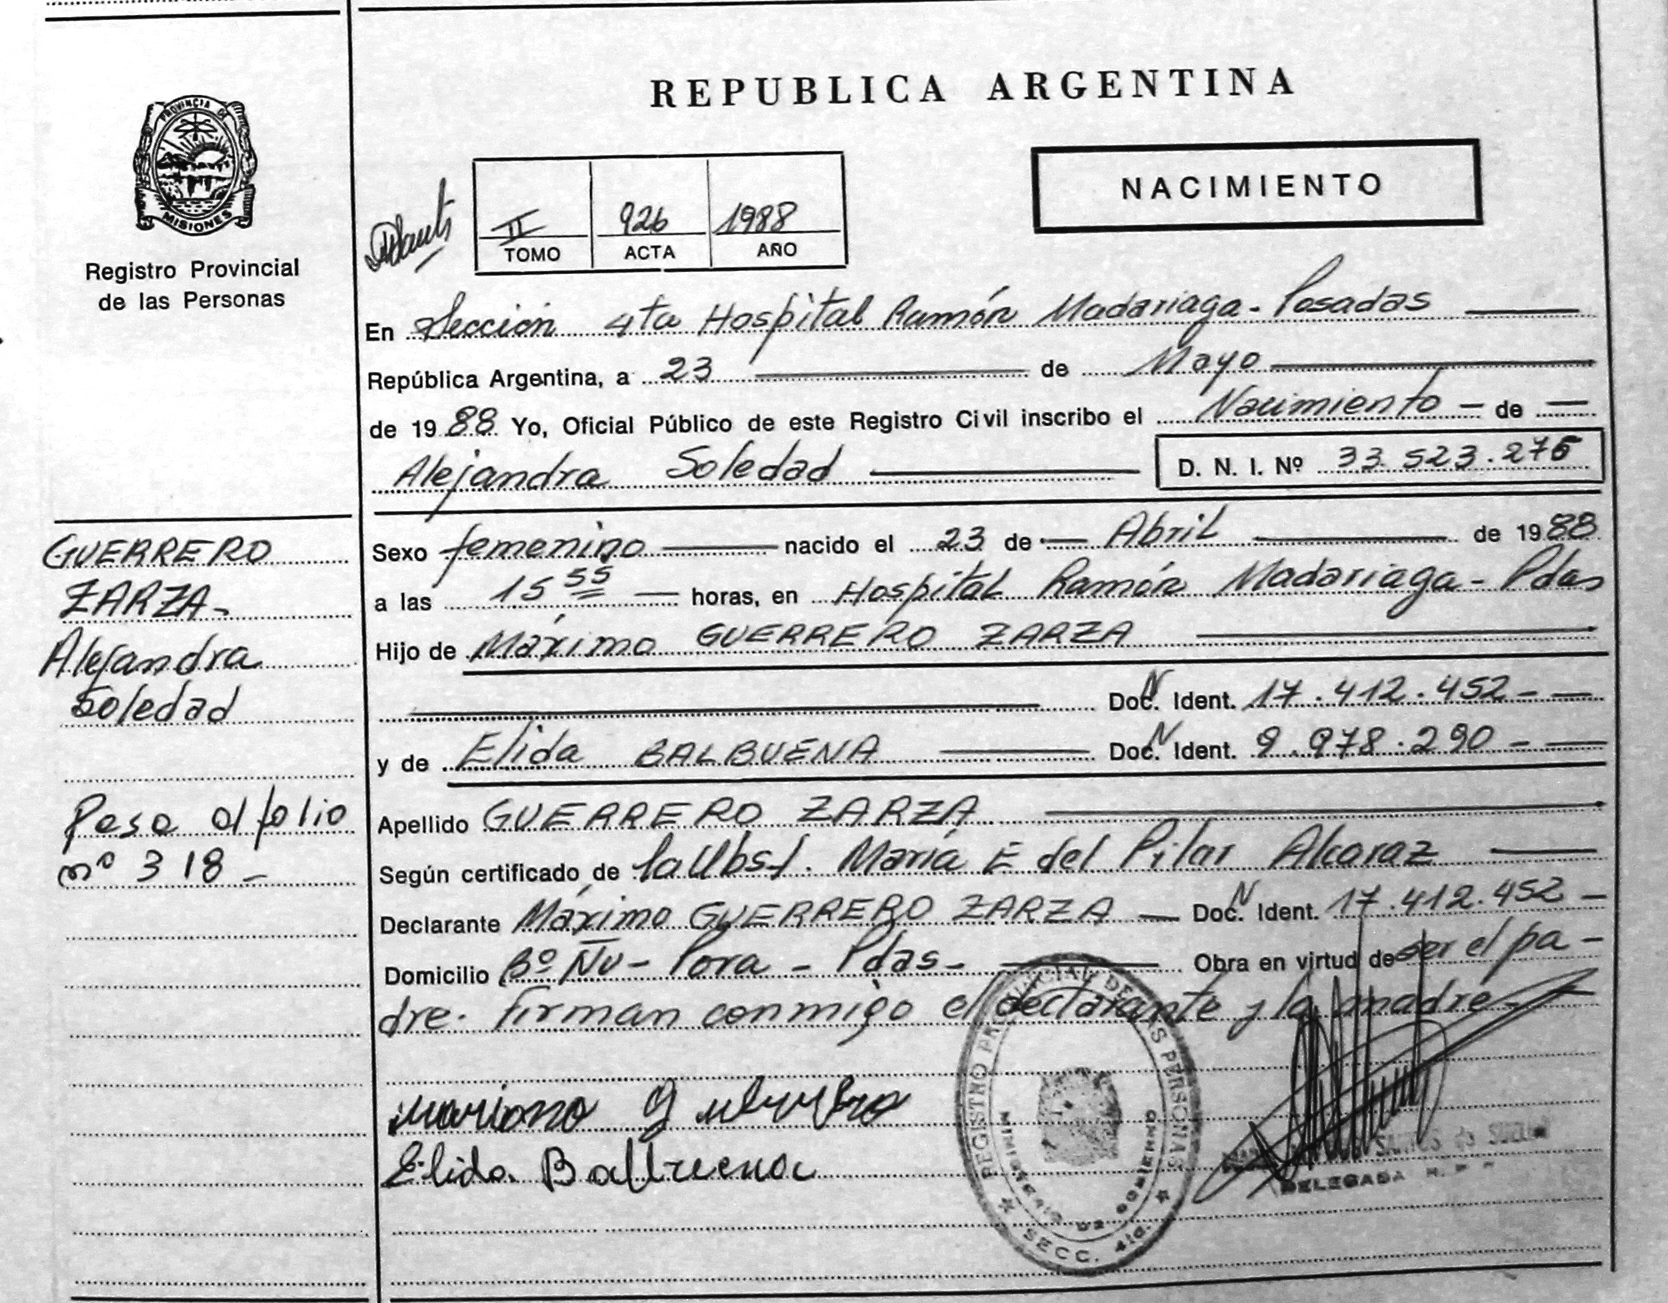 REPUBLICA ARGENTINA
PROVINCIA DE
MISIONES
Registro Provincial
de las Personas
NACIMIENTO
II 926 1988
TOMO ACTA AÑO
En Sección 4ta Hospital Ramón Madariaga - Posadas
República Argentina, a 23 de Mayo
de 1988 Yo, Oficial Público de este Registro Civil inscribo el Nacimiento - de
Alejandra Soledad D. N. I. Nº 33.523.276
GUERRERO
ZARZA -
Alejandra
Soledad
Pasa al folio
nº 318 -
Sexo femenino nacido el 23 de Abril de 1988
a las 15 55 horas, en Hospital Ramón Madariaga - Pdas
Hijo de Máximo GUERRERO ZARZA
Doc. N Ident. 17.412.452 -
y de Elida BALBUENA Doc. N Ident. 9.978.290 -
Apellido GUERRERO ZARZA
Según certificado de la Obst. María E del Pilar Alcaraz
Declarante Máximo GUERRERO ZARZA - Doc. N Ident. 17.412.452 -
Domicilio Bº Ñu - Pora - Pdas - Obra en virtud de ser el pa-
dre. Firman conmigo el declarante y la madre -
Elida Balbuena
REGISTRO PROVINCIAL DE LAS PERSONAS
MINISTERIO DE GOBIERNO
SECC. 4ta.
DELEGADA